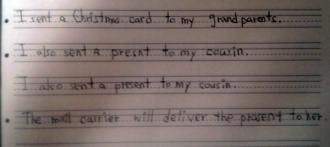 I sent a Christmas card to my grandparents.
I also sent a present to my cousin.
I also sent a present to my cousin.
The mail carrier will deliver the present to her.